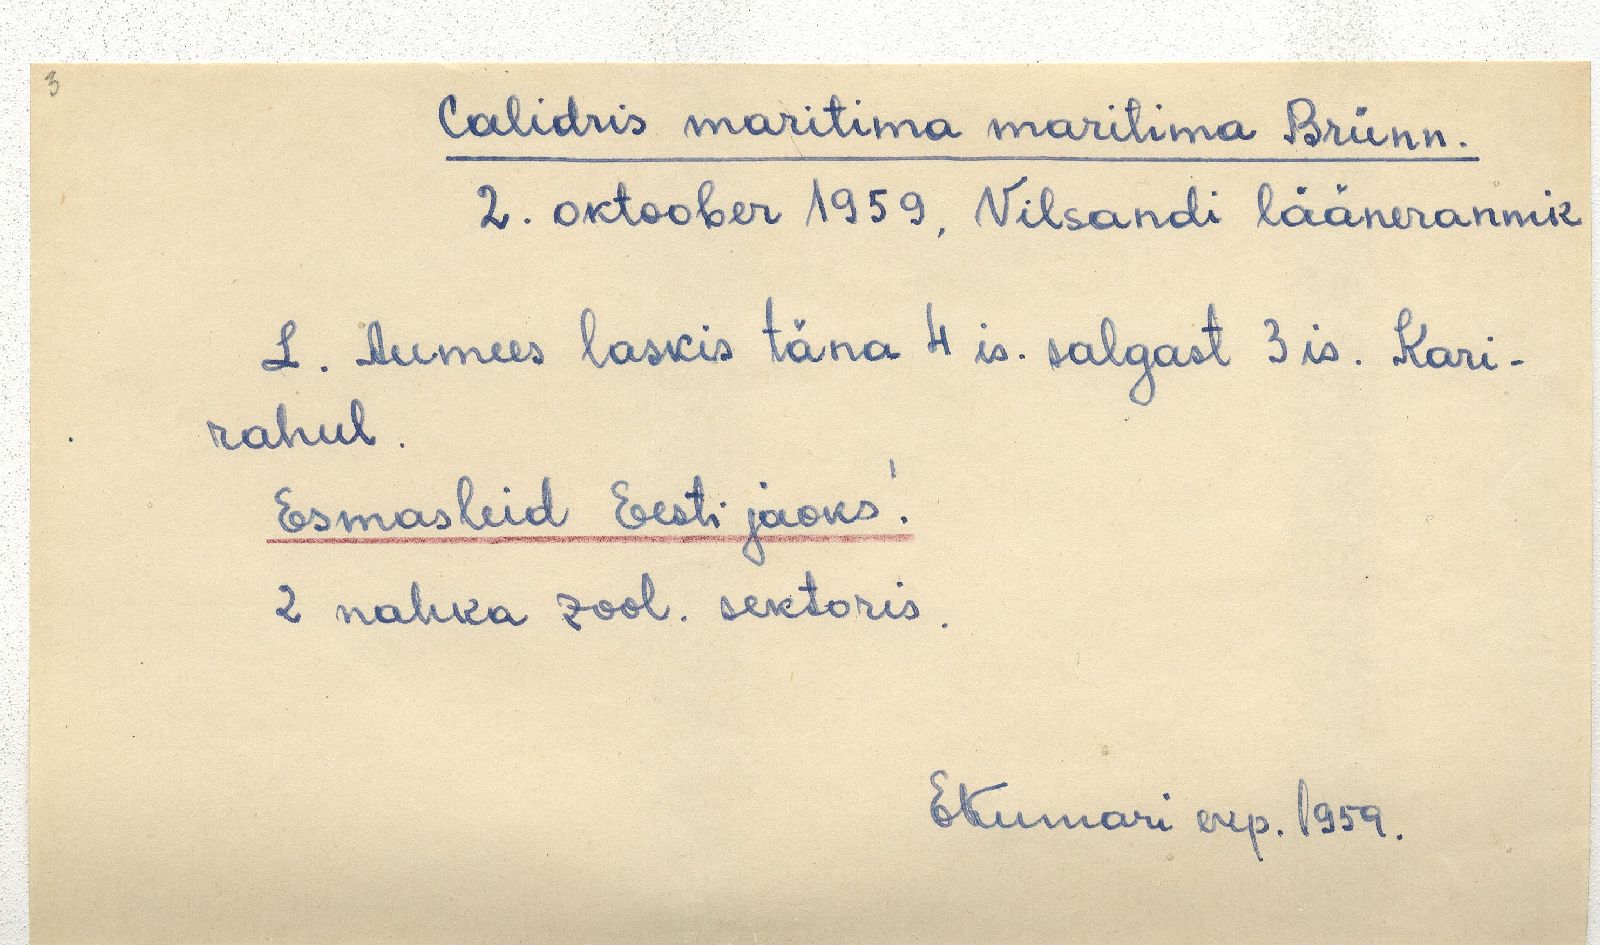 3
Calidris maritima maritima Brünn.
2. oktoober 1959, Vilsandi läänerannik
L. Aumees laskis täna 4 is. salgast 3 is. Kari-
rahul.
Esmasleid Eesti jaoks!
2 nahka zool. sektoris.
EKumari exp. 1959.